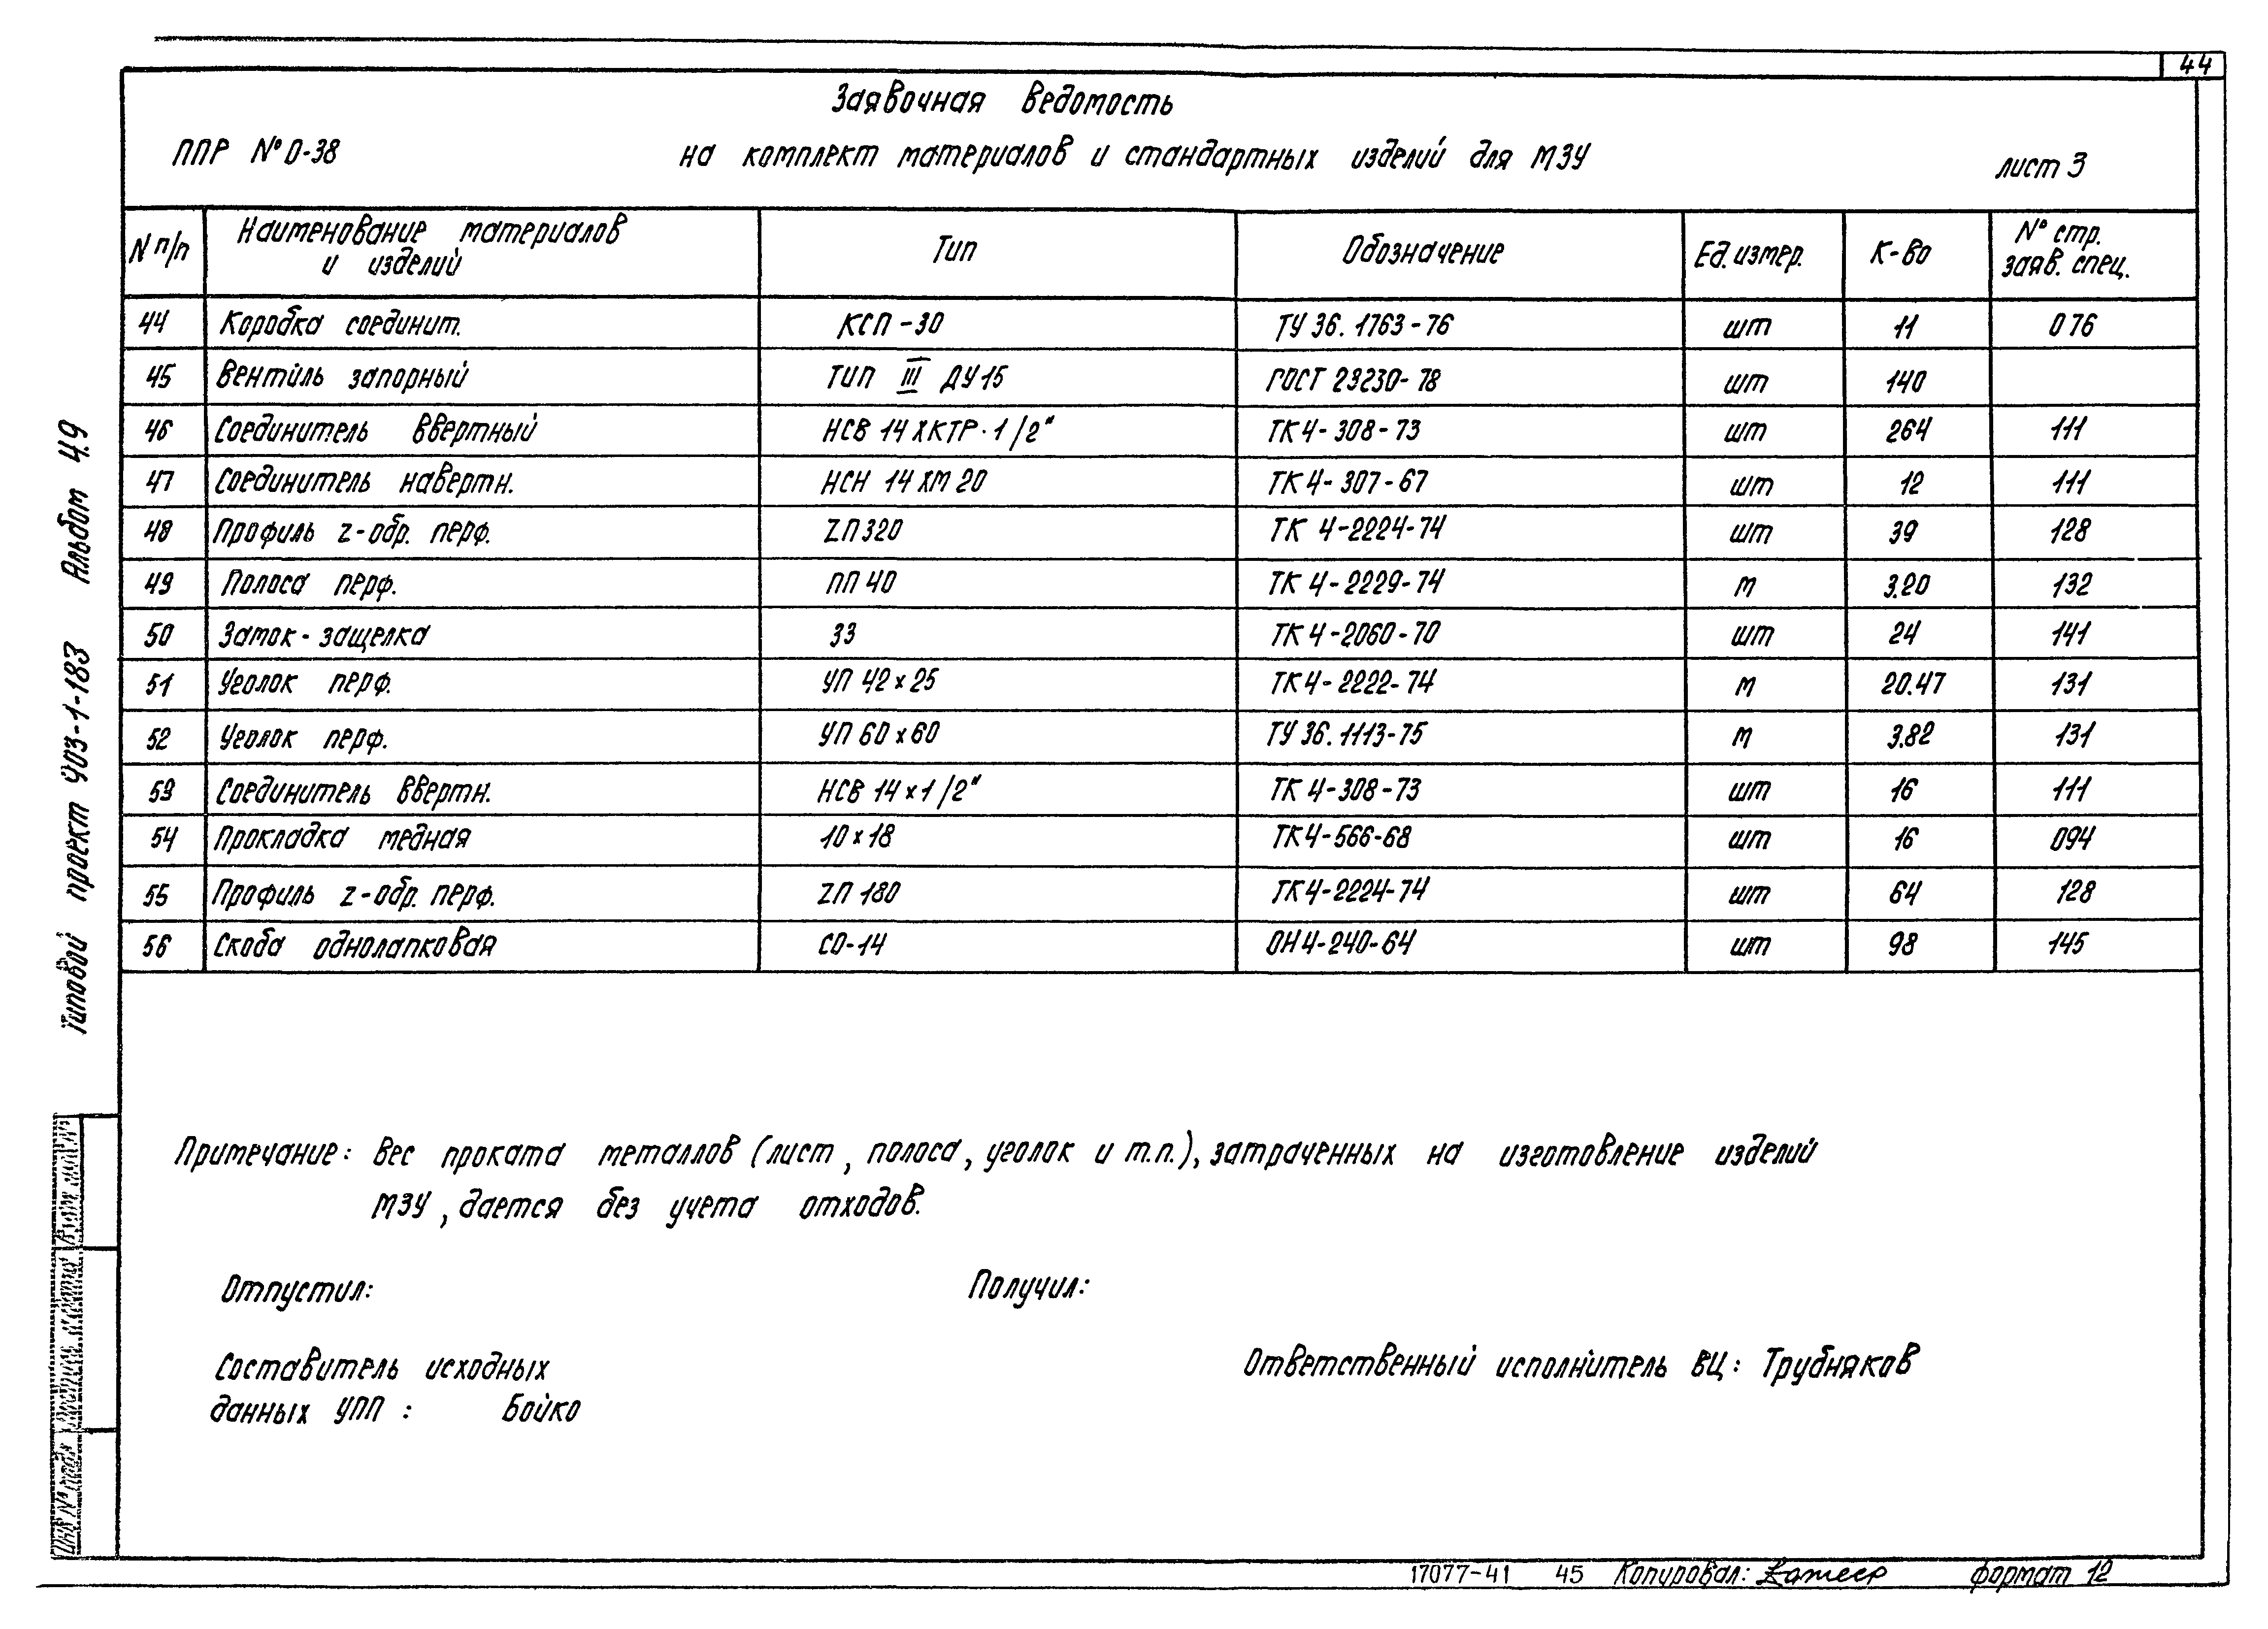 44
Заявочная ведомость
ППР №0-38 на комплект материалов и стандартных изделий для МЗУ лист 3
N п/п Наименование материалов и изделий Тип Обозначение Ед. измер. К-во № стр. заяв. спец.
44 Коробка соединит. КСП-30 ТУ 36.1763-76 шт 11 076
45 Вентиль запорный тип III ДУ15 ГОСТ 23230-78 шт 140
46 Соединитель ввертный НСВ 14ХКТР.1/2" ТК4-308-73 шт 264 111
47 Соединитель навертн. НСН 14ХМ20 ТК4-307-67 шт 12 111
48 Профиль z-обр. перф. ZП320 ТК 4-2224-74 шт 39 128
49 Полоса перф. ПП 40 ТК 4-2229-74 м 3.20 132
50 Заток-защелка 33 ТК4-2060-70 шт 24 141
51 Уголок перф. УП 42х25 ТК4-2222-74 м 20.47 131
52 Уголок перф. УП 60х60 ТУ 36.1113-75 м 3.82 131
53 Соединитель ввертн. НСВ 14х1/2" ТК 4-308-73 шт 16 111
54 Прокладка медная 10х18 ТК4-566-68 шт 16 094
55 Профиль z-обр. перф. ZП 180 ТК4-2224-74 шт 64 128
56 Скоба однолапковая СО-14 ОН4-240-64 шт 98 145
Примечание: Вес проката металлов (лист, полоса, уголок и т.п.), затраченных на изготовление изделий
МЗУ, дается без учета отходов.
Отпустил: Получил:
Составитель исходных
данных УПП: Бойко
Ответственный исполнитель ВЦ: Трубняков
Типовой проект 403-1-183 Альбом 4.9
17077-41 45 Копировал: формат 12